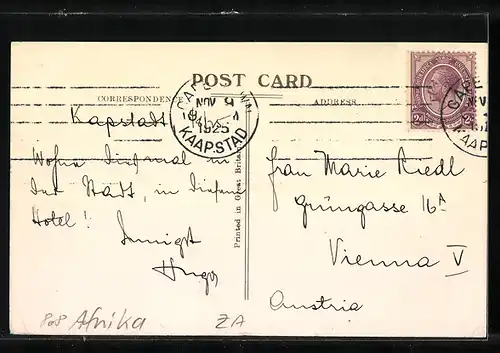 POST CARD
CORRESPONDENCE
ADDRESS
NOV 9
1925
KAAPSTAD
2d 2d
KAAP
Kapstadt
Wohne diesmal in
der Stadt, in diesem
Hotel!
Innigst
Hugo
Printed in Great Britain
Frau Marie Riedl
Grüngasse 16A
Vienna V
Austria
808 Afrika
ZA